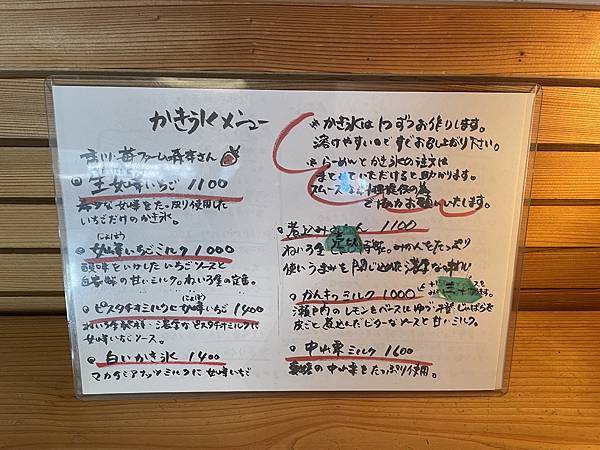 かき氷メニュー
香川・苺ファーム森本さん
生女峰いちご 1100
希少な女峰をたっぷり使用した
いちごだけのかき氷。
(にょほう)
女峰いちごミルク 1000
酸味をいかしたいちごソースと
自家製の甘いミルク。ねいろ屋の定番。
(にょほう)
ピスタチオミルクに女峰いちご 1400
ねいろ屋発祥・濃厚なピスタチオミルクに
女峰いちごソース。
白いかき氷 1400
マカダミアナッツミルクに女峰いちご
※かき氷は1つずつお作りします。
溶けやすいので すぐお召し上がり下さい。
※らーめんとかき氷の注文は
まとめていただけると助かります。
スムーズな 提供の為
ご協力お願いいたします。
煮込みみかん 1100
ねいろ屋 みかんをたっぷり
使いうまみを閉じ込めた
かんきつミルク 1000
瀬戸内のレモンをベースにゆづ・じばらを
皮ごと煮込んだビターなソースと甘いミルク。
中山栗ミルク 1600
愛媛の中山栗をたっぷり使用。